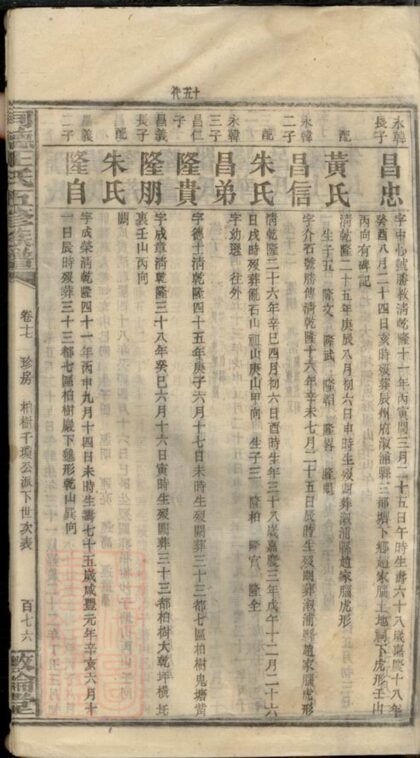 十五代
永韓長子
昌忠
字中心號勝救清乾隆十一年丙寅閏三月二十五日午時生壽六十八歲嘉慶十八年
癸酉八月二十四日亥時歿葬辰州府溆浦縣三都塘下鄉趙家隴土地嗣下虎形壬山
丙向有碑記
配
黃氏
清乾隆二十五年庚辰八月初六日申時生歿闕葬溆浦縣趙家隴虎形
生子五 隆文 隆武 隆韜 隆畧 隆
永韓二子
昌信
字介石號勝傳清乾隆十六年辛未七月二十五日辰時生歿闕葬溆浦縣趙家隴虎形
配
朱氏
清乾隆二十六年辛巳四月初六日酉時生年三十八歲嘉慶三年戊午十二月二十六
日戌時歿葬亂石山祖山庚山甲向 生子三 隆柏 隆官 隆全
永韓三子
昌弟
字幼 往外
昌仁子
隆貴
字德十清乾隆四十五年庚子六月十七日未時生歿闕葬三十三都七區柏樹鬼塘
裏壬山丙向
昌義長子
隆朋
字成章清乾隆三十八年癸巳六月十六日寅時生歿闕葬三十三都柏樹大乾坪橫坵
配
朱氏
闕
昌義二子
隆自
字成榮清乾隆四十一年丙申九月十四日未時生壽七十五歲咸豐元年辛亥六月十
一日辰時歿葬三十三都七區柏樹巖下龜形乾山巽向
氏五修族譜
卷十七 珍房 柏樹千璵公派下世次表
百七六
敦倫堂